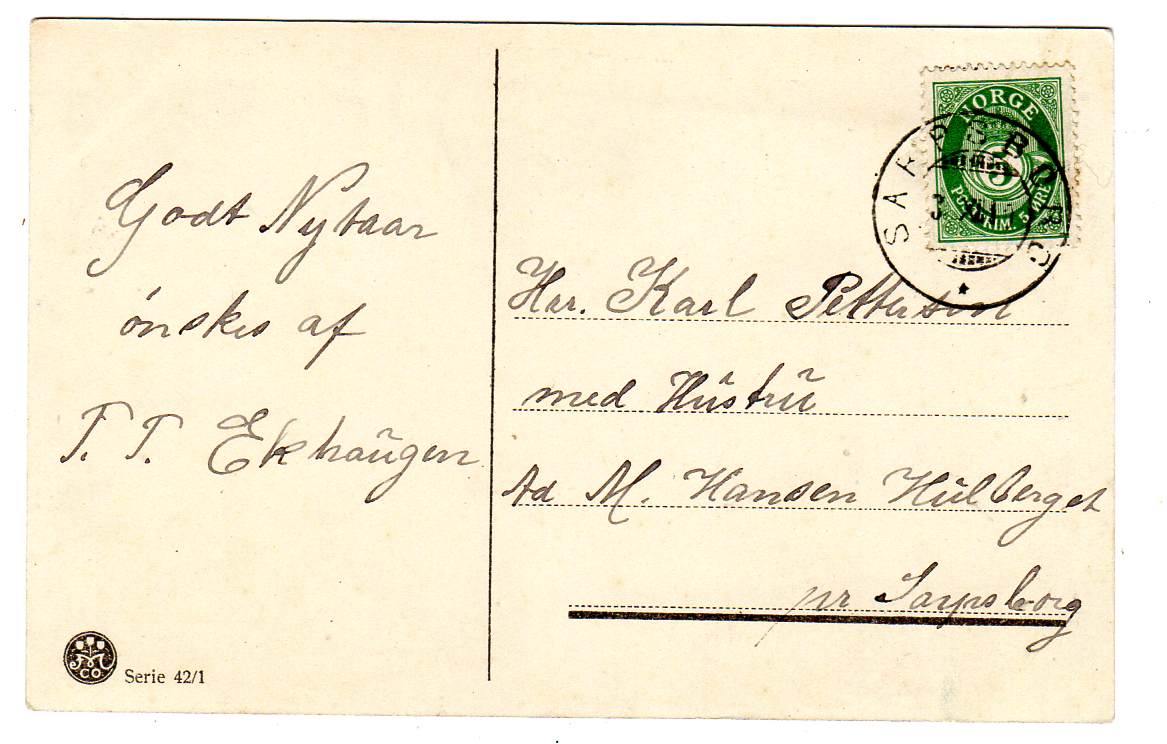 Godt Nytaar
ønskes af
T. T. Ekhaugen
Serie 42/1
NORGE
5
POSTFRIM. 5 ØRE
SARPSBORG
Hrr. Karl Petterson
med Hustru
Ad M. Hansen Hulberget
pr Sarpsborg